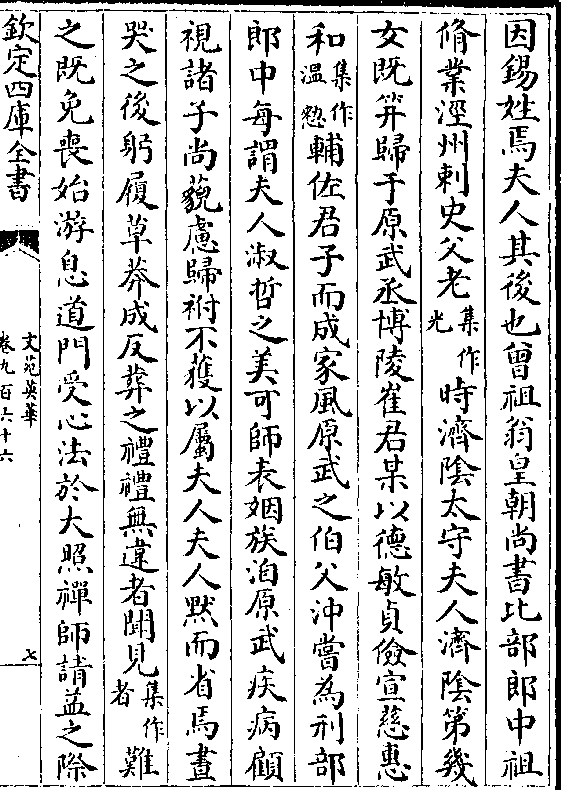 因錫姓焉夫人其後也曾祖翁皇朝尚書比部郎中祖
脩業涇州刺史父老集作光時濟陰太守夫人濟陰第幾
女既笄歸于原武丞博陵崔君某以德敏貞儉宣慈惠
和集作溫懃輔佐君子而成家風原武之伯父沖嘗為刑部
郎中每謂夫人淑哲之美可師表姻族洎原武疾病顧
視諸子尚藐慮歸祔不獲以屬夫人夫人默而省焉晝
哭之後躬履草莽成反葬之禮禮無違者聞見集作者難
之既免喪始游息道門受心法於大照禪師請益之際
欽定四庫全書
文苑英華
卷九百六十六
七